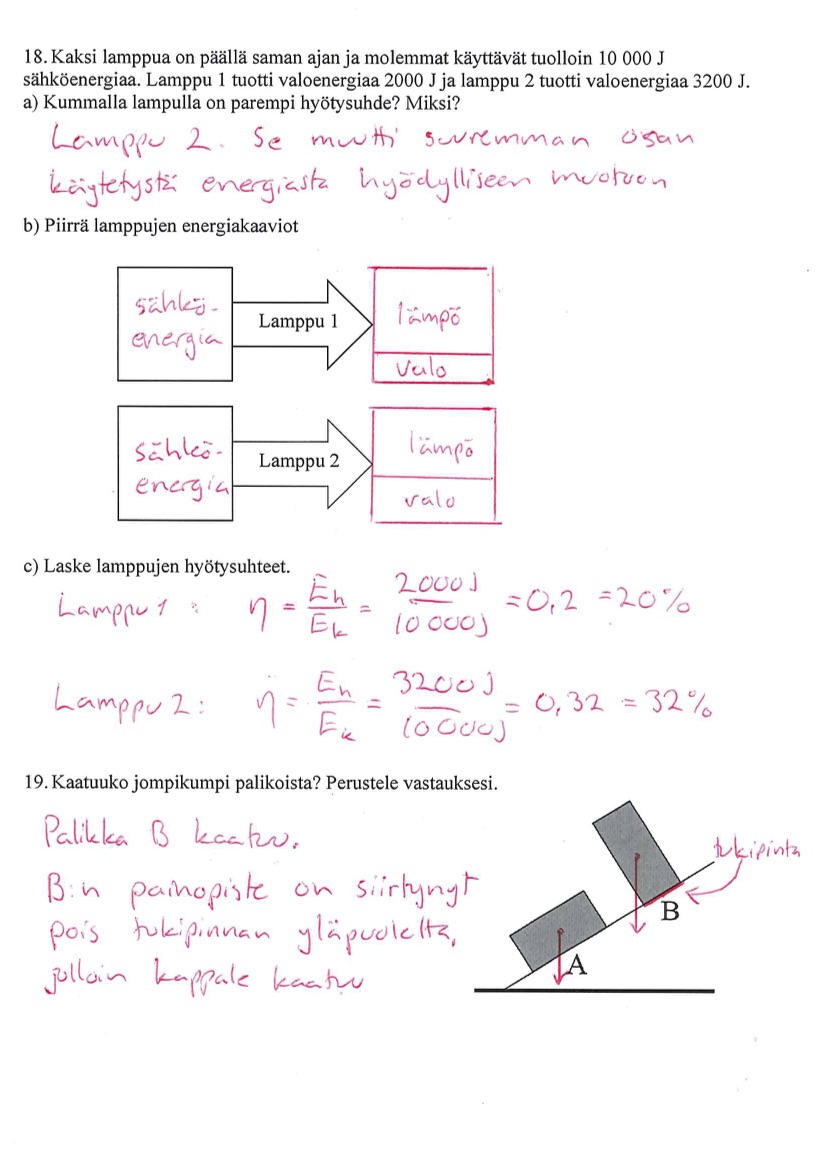 18. Kaksi lamppua on päällä saman ajan ja molemmat käyttävät tuolloin 10 000 J
sähköenergiaa. Lamppu 1 tuotti valoenergiaa 2000 J ja lamppu 2 tuotti valoenergiaa 3200 J.
a) Kummalla lampulla on parempi hyötysuhde? Miksi?
Lamppu 2. Se muutti suuremman osan
käytetystä energiasta hyödylliseen muotoon
b) Piirrä lamppujen energiakaaviot
sähkö-
energia
Lamppu 1
lämpö
valo
sähkö-
energia
Lamppu 2
lämpö
valo
c) Laske lamppujen hyötysuhteet.
Lamppu 1: η = Eh/Ek = 2000J/10 000J = 0,2 = 20%
Lamppu 2: η = Eh/Ek = 3200J/10 000J = 0,32 = 32%
19. Kaatuuko jompikumpi palikoista? Perustele vastauksesi.
Palikka B kaatuu.
B:n painopiste on siirtynyt
pois tukipinnan yläpuolelta,
jolloin kappale kaatuu
tukipinta
B
A